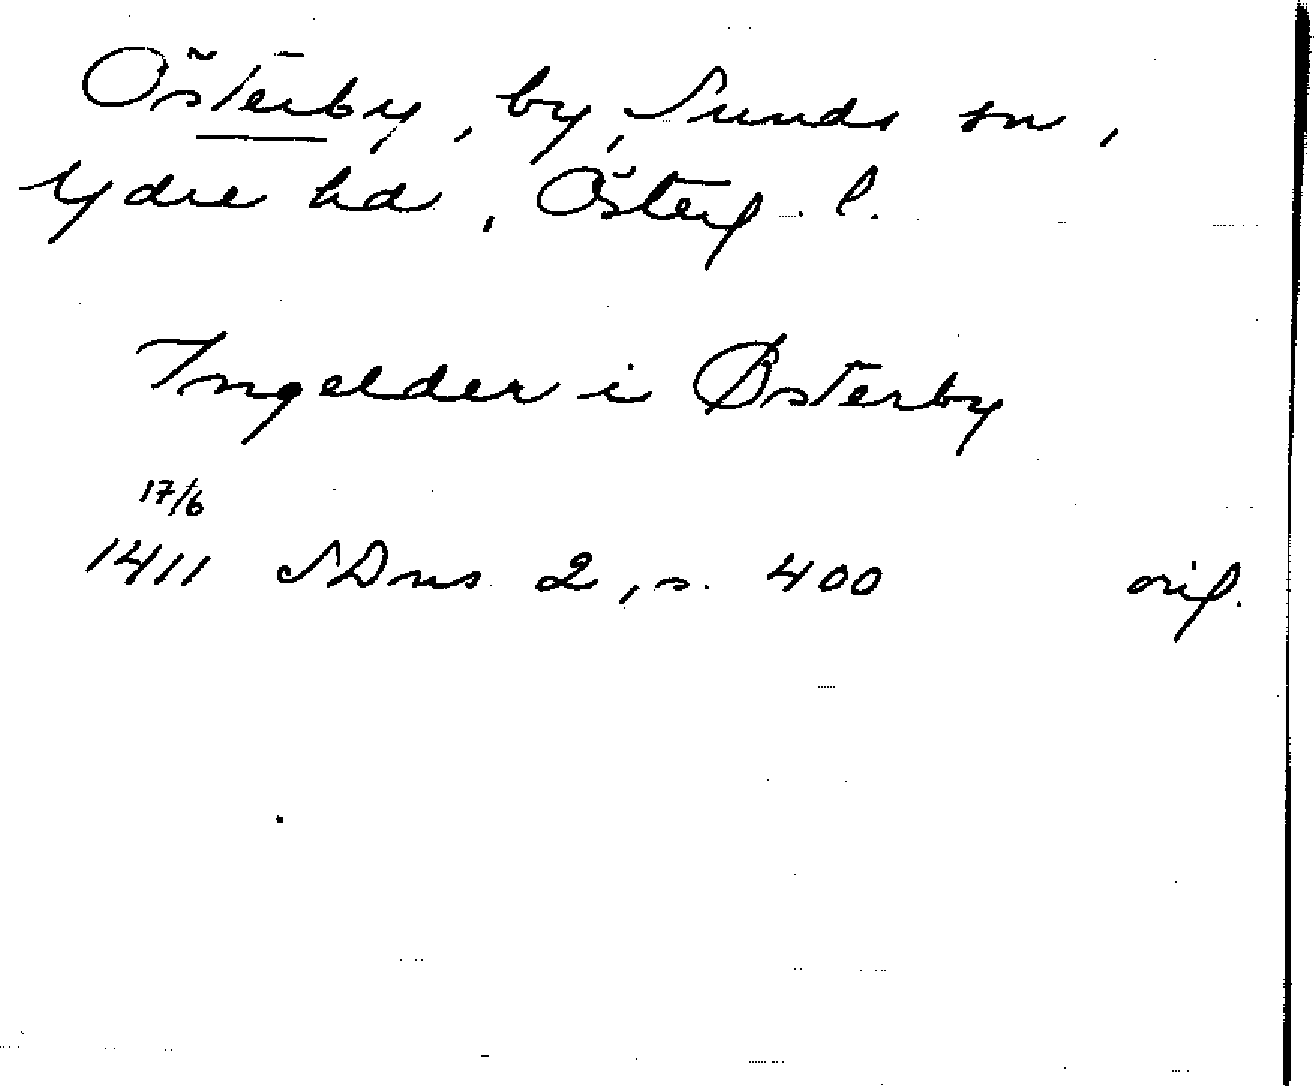 Österby, by, Sunds sn,
Ydre hd, Österg. l.
Ingelder i Østerby
17/6
1411 SDns 2, s. 400 orig.